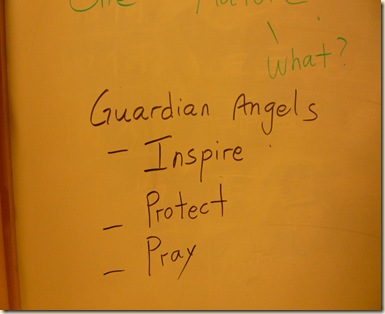 What?
Guardian Angels
– Inspire
– Protect
– Pray